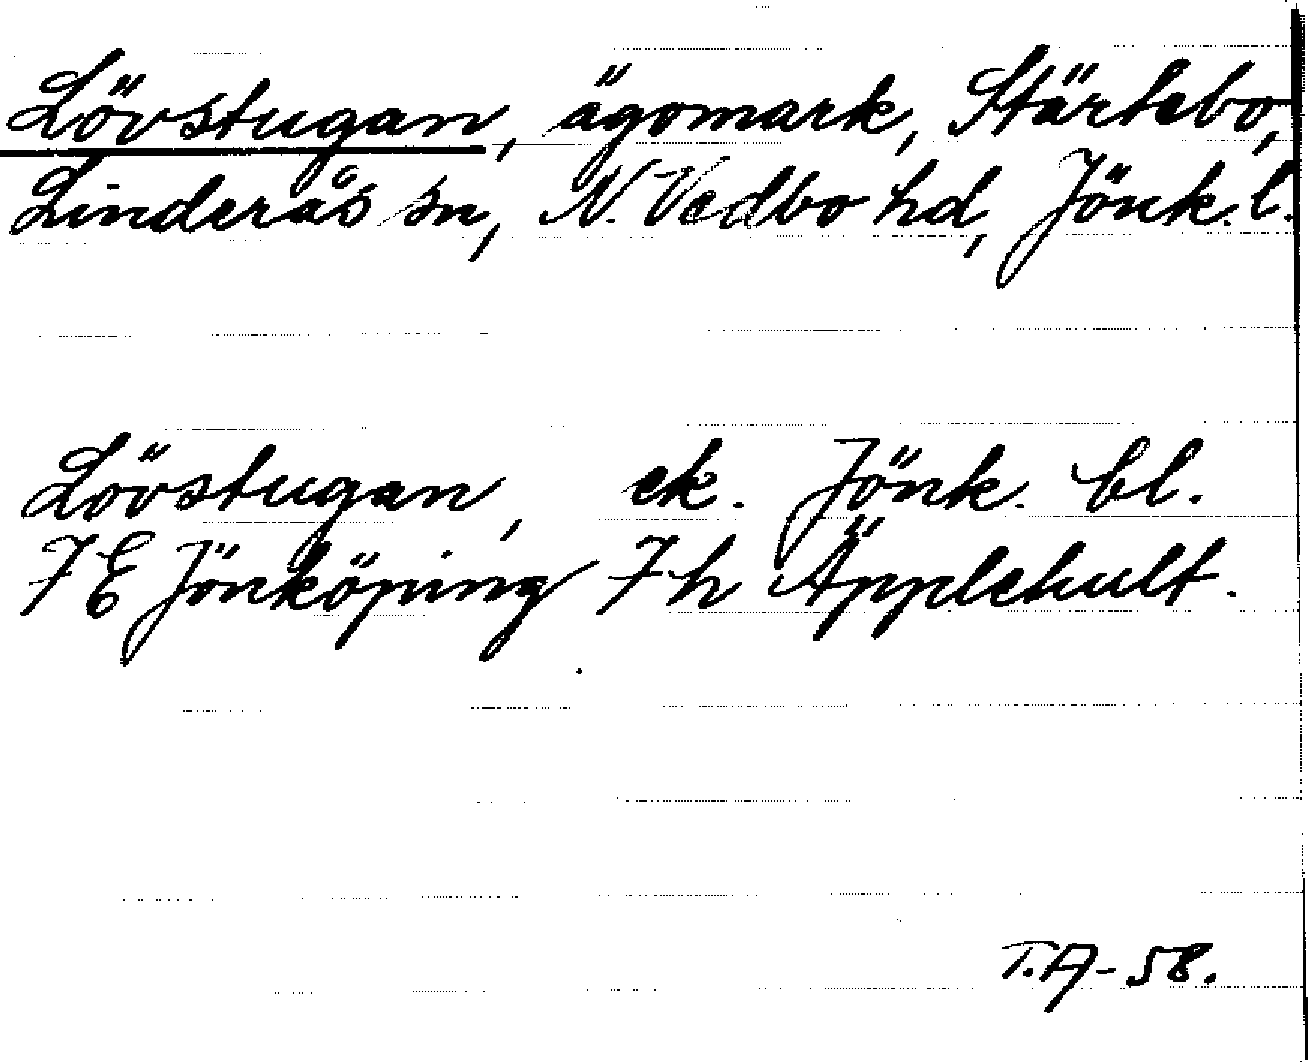 Lövstugan, ägomark, Stärtebo,
Linderås sn, N. Vedbo hd, Jönk. l.
Lövstugan, ek. Jönk. bl.
7E Jönköping 7h Äpplehult.
T.A-58.